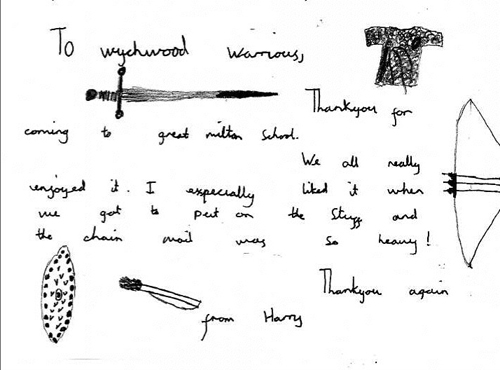 To wychwood warrious,
Thankyou for
coming to great milton School.
We all really
enjoyed it. I especially liked it when
we got to put on the stuff and
the chain mail was so heavy!
Thankyou again
from Harry